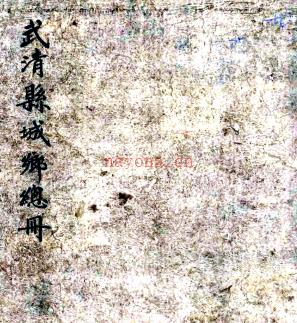 武清縣城鄉總冊
nevona.cn